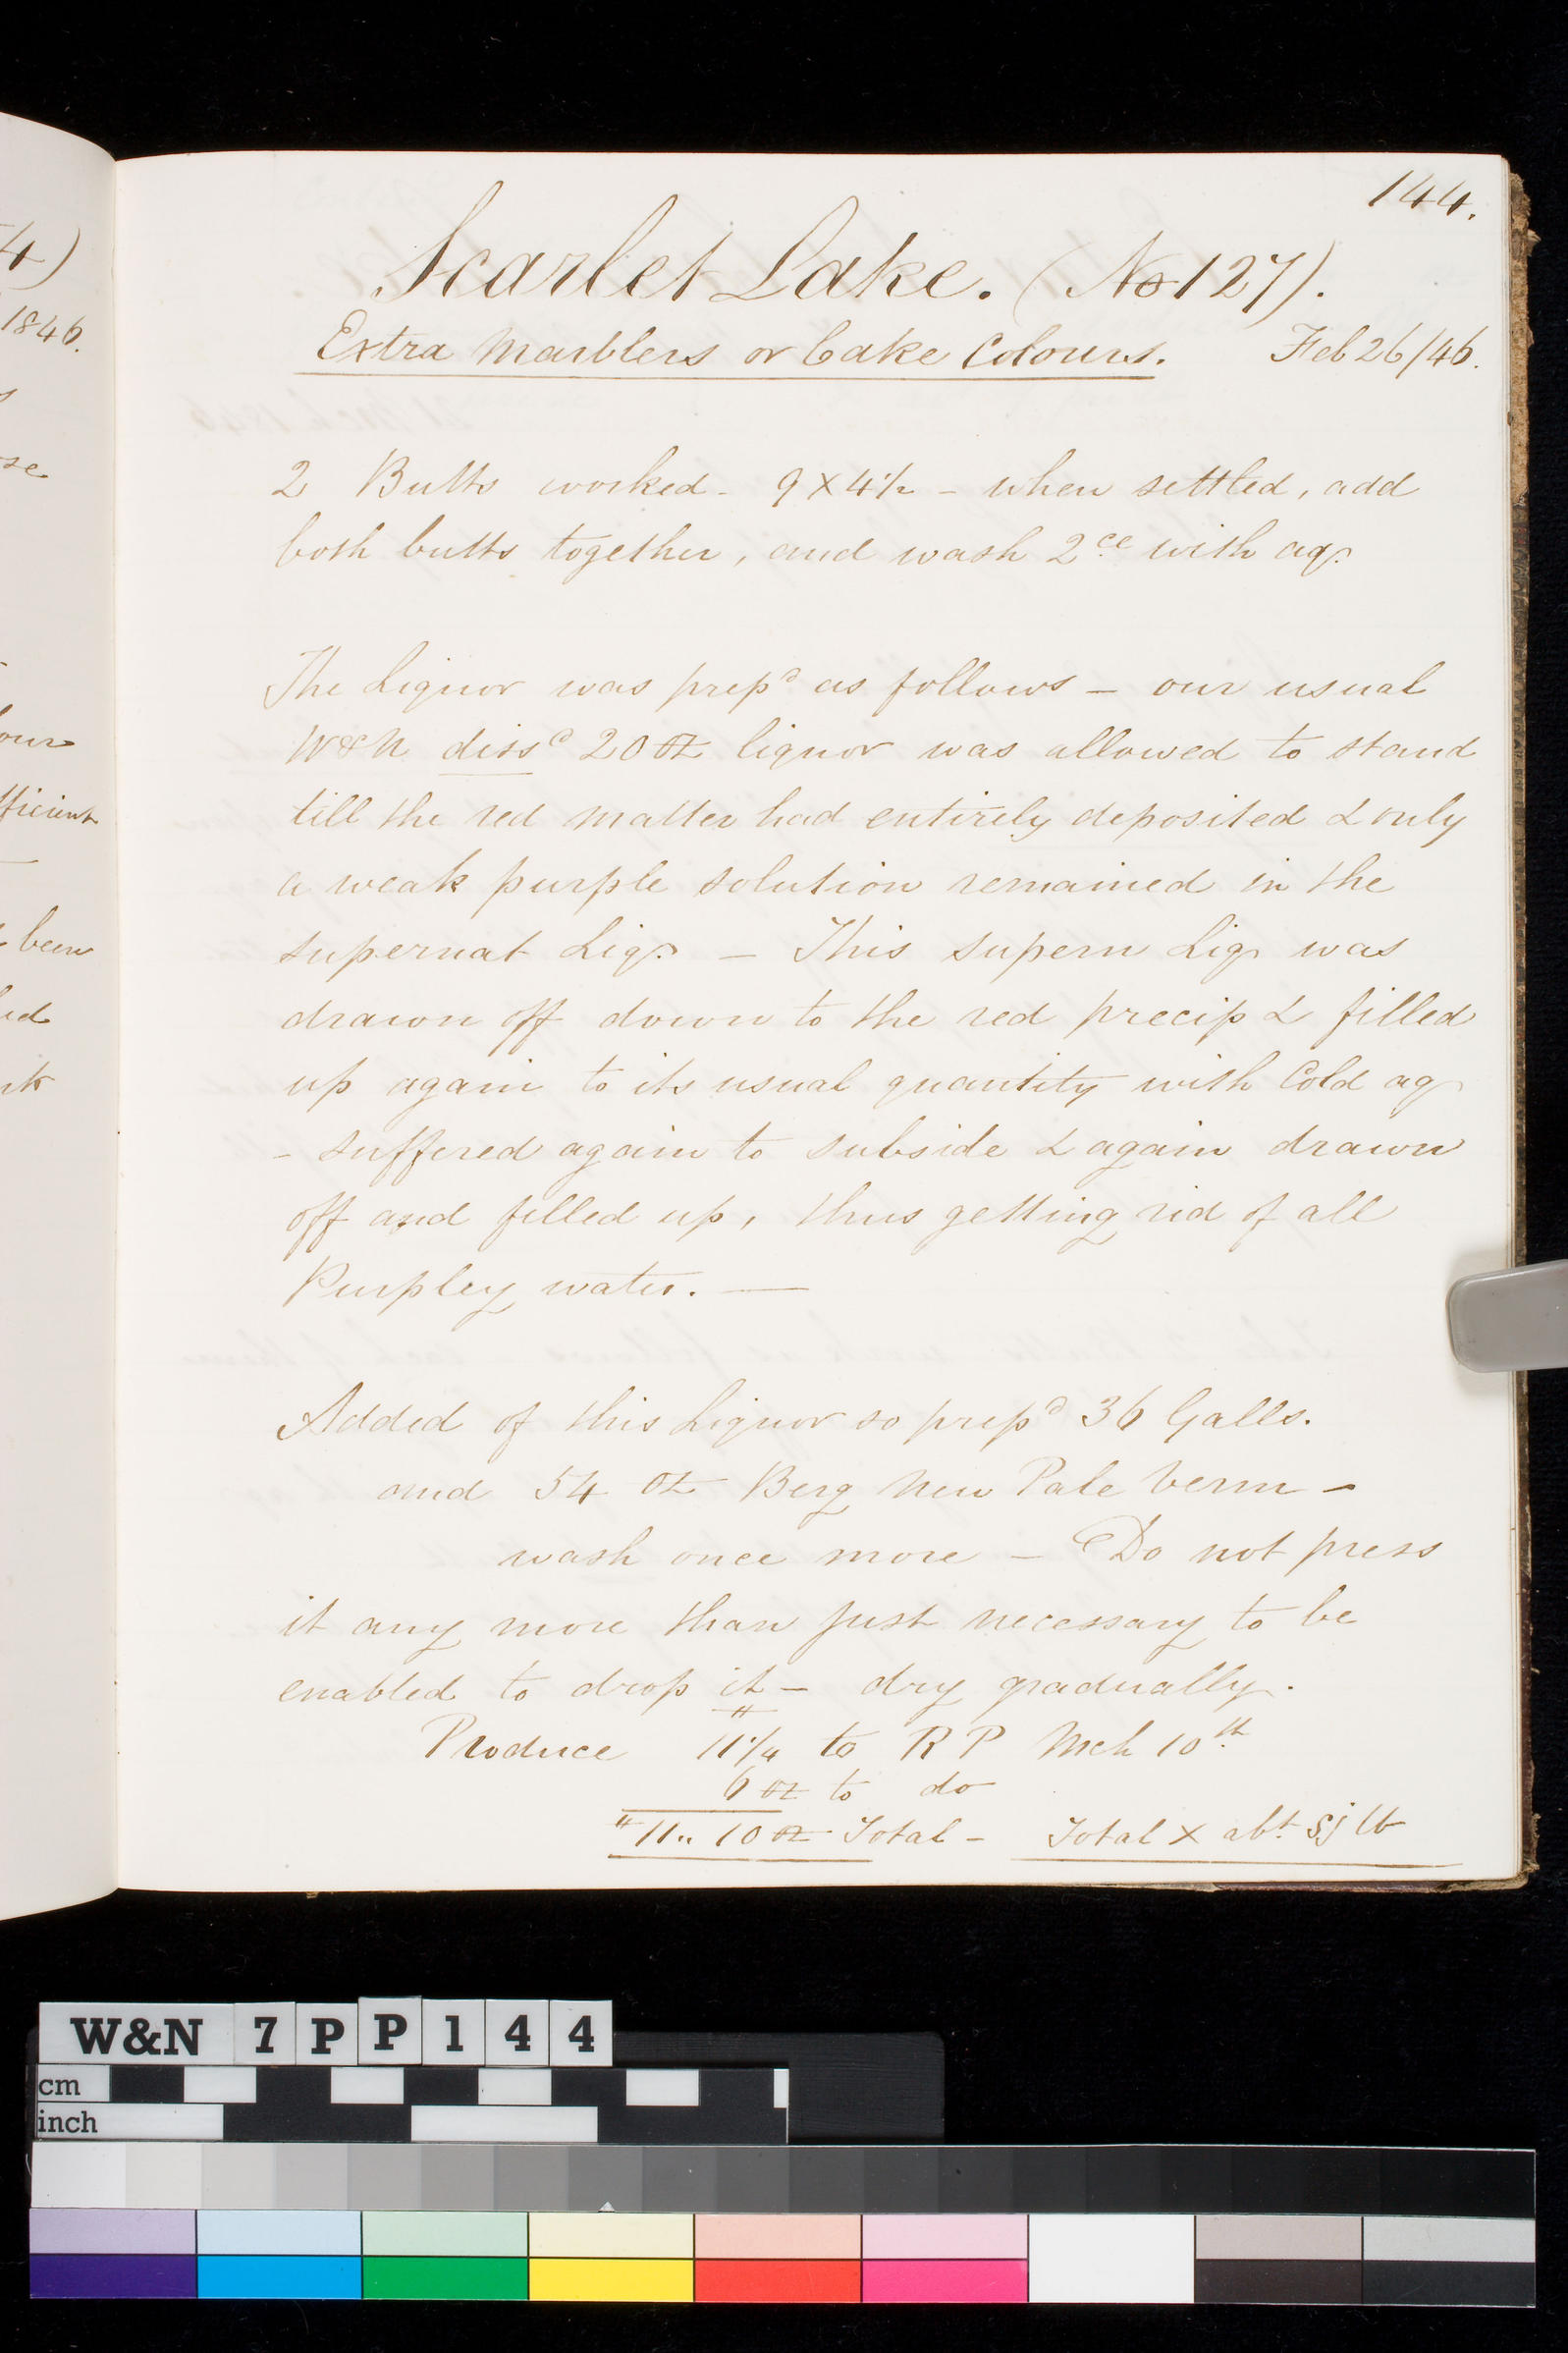 144.
Scarlet Lake. (No 127).
Extra Marblers or Cake Colours. Feb 26/46.
2 Butts worked - 9 X 4 1/2 - when settled, add
both butts together, and wash 2ce with aq:
The Liquor was prepd as follows - our usual
W&N dissd 20 oz liquor was allowed to stand
till the red matter had entirely deposited & only
a weak purple solution remained in the
supernat Liq: - This supern Liq was
drawn off down to the red precip & filled
up again to its usual quantity with Cold aq
- suffered again to subside & again drawn
off and filled up, thus getting rid of all
Purpley water. —
Added of this Liquor so prepd 36 Galls.
and 54 oz Berg New Pale Verm -
wash once more - Do not press
it any more than just necessary to be
enabled to drop it - dry gradually.
Produce 11 1/4 to R P Mch 10th
6 oz to do
11 .. 10 oz Total - Total X abt lb
4)
1846.
s
se
our
fficient
been
ed
nk
W&N 7 P P 1 4 4
cm
inch